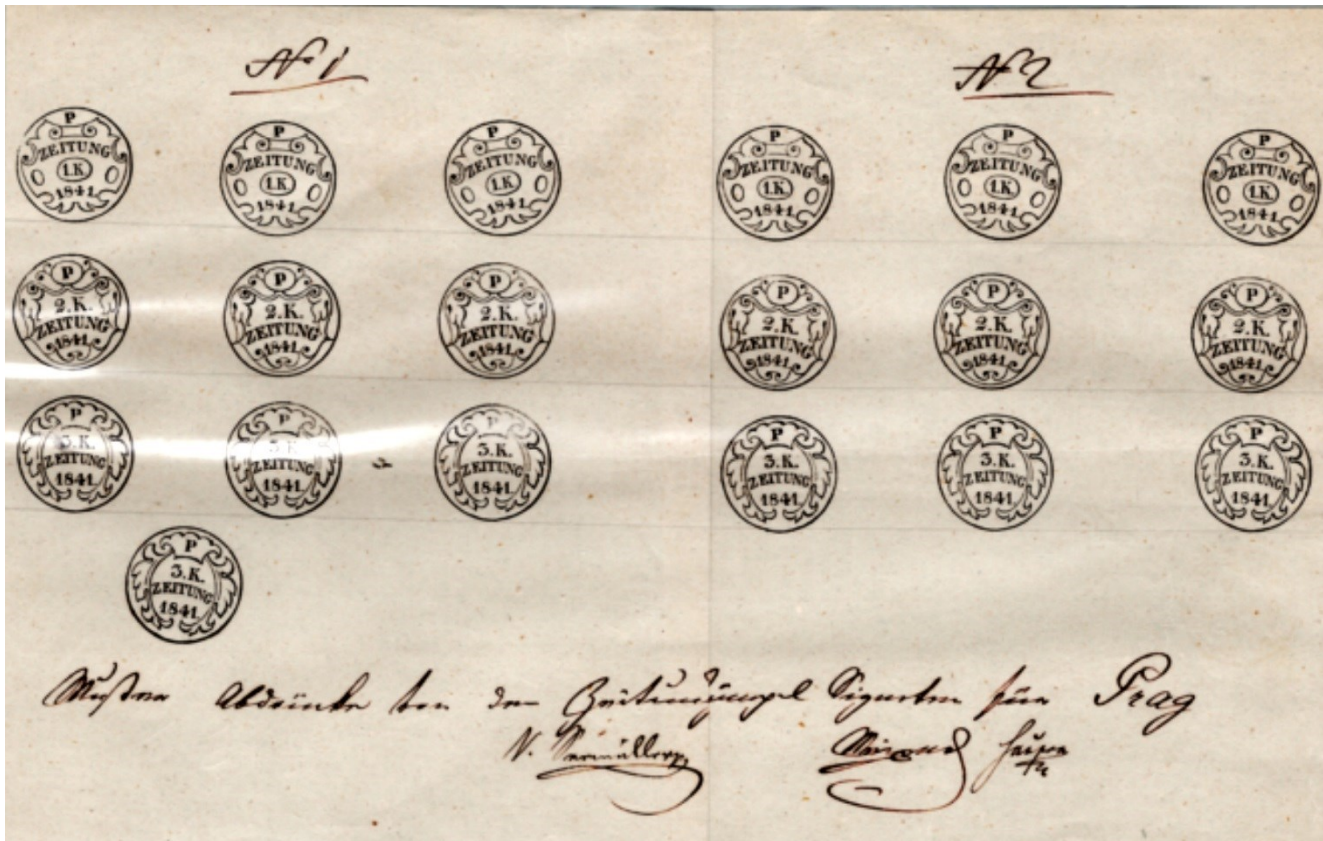 № 1
№ 2
P ZEITUNG 1.K 1841
P ZEITUNG 1.K 1841
P ZEITUNG 1.K 1841
P ZEITUNG 1.K 1841
P ZEITUNG 1.K 1841
P ZEITUNG 1.K 1841
P 2.K. ZEITUNG 1841
P 2.K. ZEITUNG 1841
P 2.K. ZEITUNG 1841
P 2.K. ZEITUNG 1841
P 2.K. ZEITUNG 1841
P 2.K. ZEITUNG 1841
P 3.K. ZEITUNG 1841
P 3.K. ZEITUNG 1841
P 3.K. ZEITUNG 1841
P 3.K. ZEITUNG 1841
P 3.K. ZEITUNG 1841
P 3.K. ZEITUNG 1841
P 3.K. ZEITUNG 1841
Muster Abdrücke von den Signeten für Prag